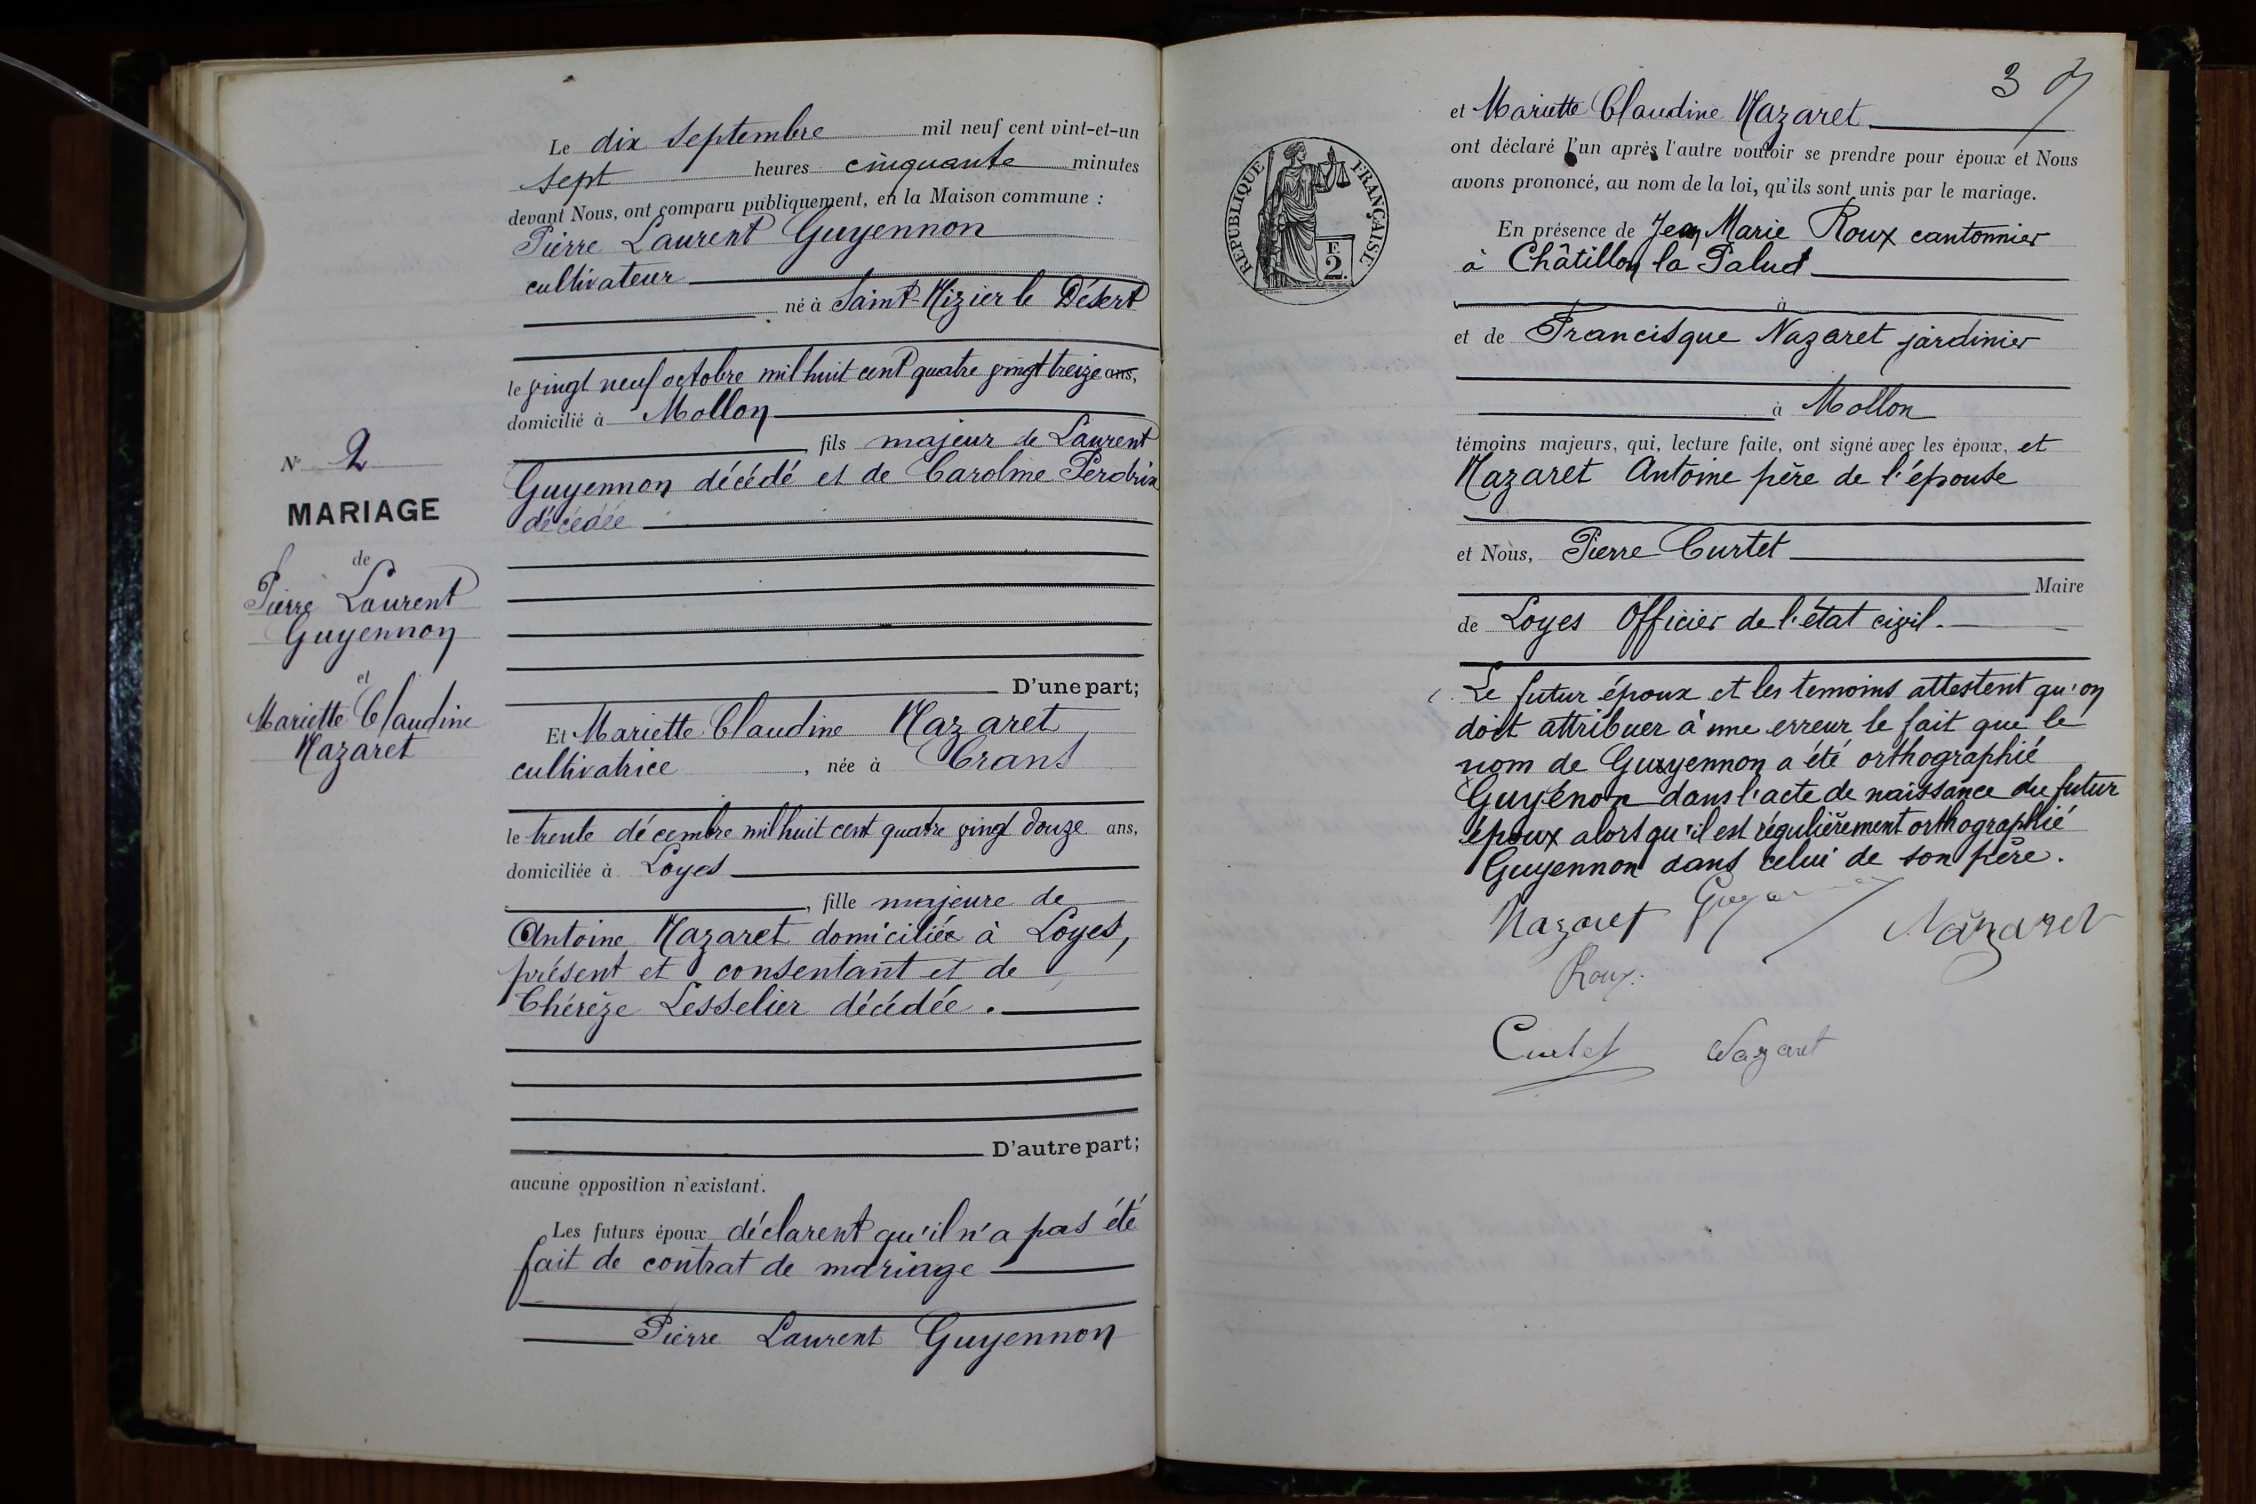 Le dix septembre mil neuf cent vint-et-un
sept heures cinquante minutes
devant Nous, ont comparu publiquement, en la Maison commune :
Pierre Laurent Guyennon
cultivateur
né à Saint Nizier le Désert
le vingt neuf octobre mil huit cent quatre vingt treize ans,
domicilié à Mollon
fils majeur de Laurent
Guyennon décédé et de Caroline Perdrix
décédée
D'une part;
N° 2
MARIAGE
de
Pierre Laurent
Guyennon
et
Mariette Claudine
Nazaret
Et Mariette Claudine Nazaret,
cultivatrice, née à Crans
le trente décembre mil huit cent quatre vingt douze ans,
domiciliée à Loyes
, fille majeure de
Antoine Nazaret domiciliée à Loyes,
présent et consentant et de
Thérèze Lesselier décédée.
D'autre part;
aucune opposition n'existant.
Les futurs époux déclarent qu'il n'a pas été
fait de contrat de mariage
Pierre Laurent Guyennon
3
et Mariette Claudine Nazaret
ont déclaré l'un après l'autre vouloir se prendre pour époux et Nous
avons prononcé, au nom de la loi, qu'ils sont unis par le mariage.
RÉPUBLIQUE FRANÇAISE
F.
2
En présence de Jean Marie Roux cantonnier
à Châtillon la Palud
à
et de Francisque Nazaret jardinier
à Mollon
témoins majeurs, qui, lecture faite, ont signé avec les époux, et
Nazaret Antoine père de l'épouse
et Nous, Pierre Curtet
Maire
de Loyes Officier de l'état civil.
Le futur époux et les temoins attestent qu'on
doit attribuer à une erreur le fait que le
nom de Guyennon a été orthographié
Guyénon dans l'acte de naissance du futur
époux alors qu'il est régulièrement orthographié
Guyennon dans celui de son père.
Nazaret Nazaret
Roux.
Curtet Nazaret